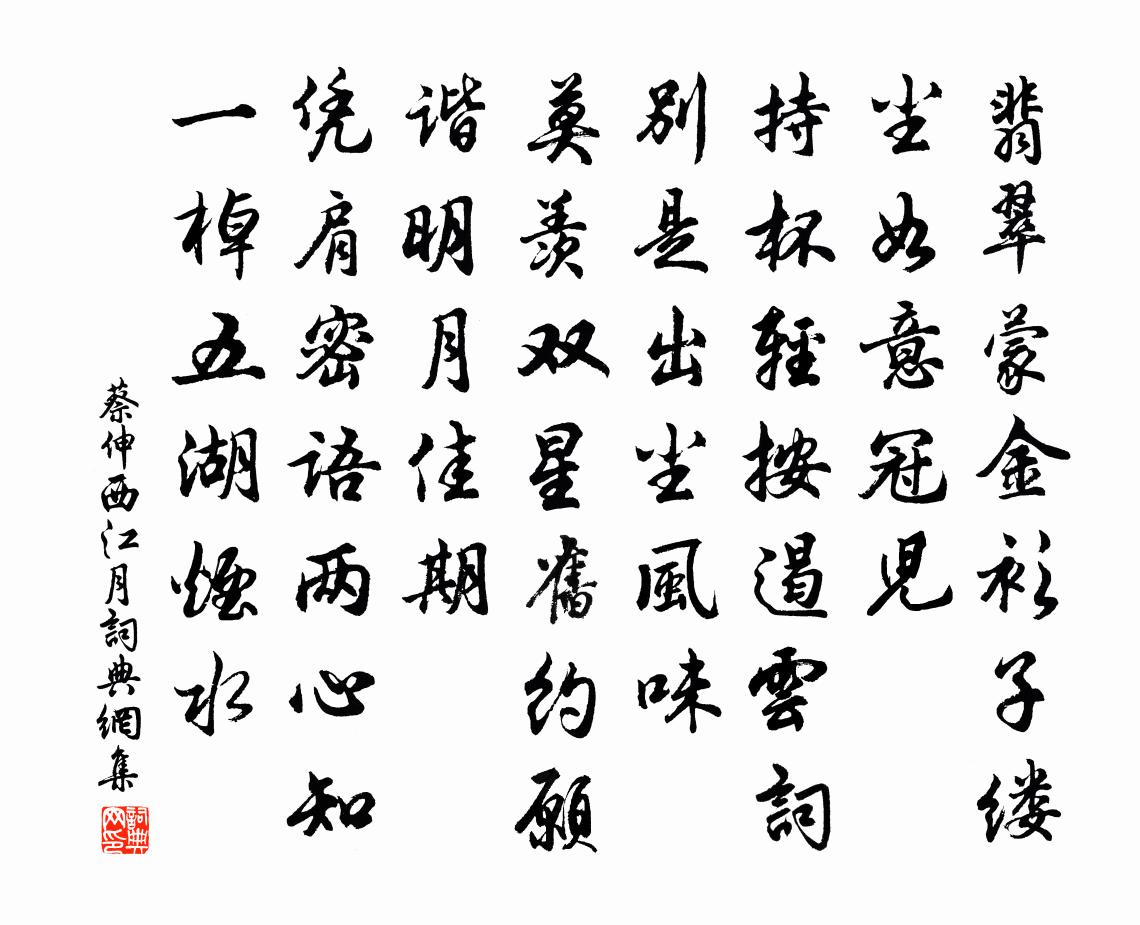 翡翠蒙金衫子缕
尘如意冠児
持杯輕按遏雲詞
别是出尘風味
莫羡双星舊约願
谐明月佳期
凭肩密语两心知
一棹五湖煙水
蔡伸西江月詞典網集
詞典网印